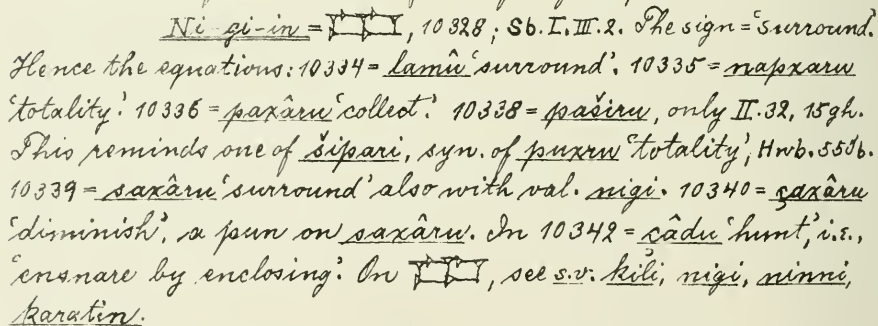 Ni-gi-in = 𒆸𒆸, 10328; Sb. I. III. 2. The sign = 'surround'.
Hence the equations: 10334 = lamû 'surround'. 10335 = napxaru
'totality'. 10336 = paxâru 'collect'. 10338 = paširu, only II. 32, 15gh.
This reminds one of šipari, syn. of puxru 'totality', Hwb. 520b.
10339 = saxâru 'surround' also with val. nigi. 10340 = çaxâru
'diminish', a pun on saxâru. In 10342 = çâdu 'hunt', i.e.,
'ensnare by enclosing'. On 𒆸𒆸, see s.v. kili, nigi, ninni,
karatin.